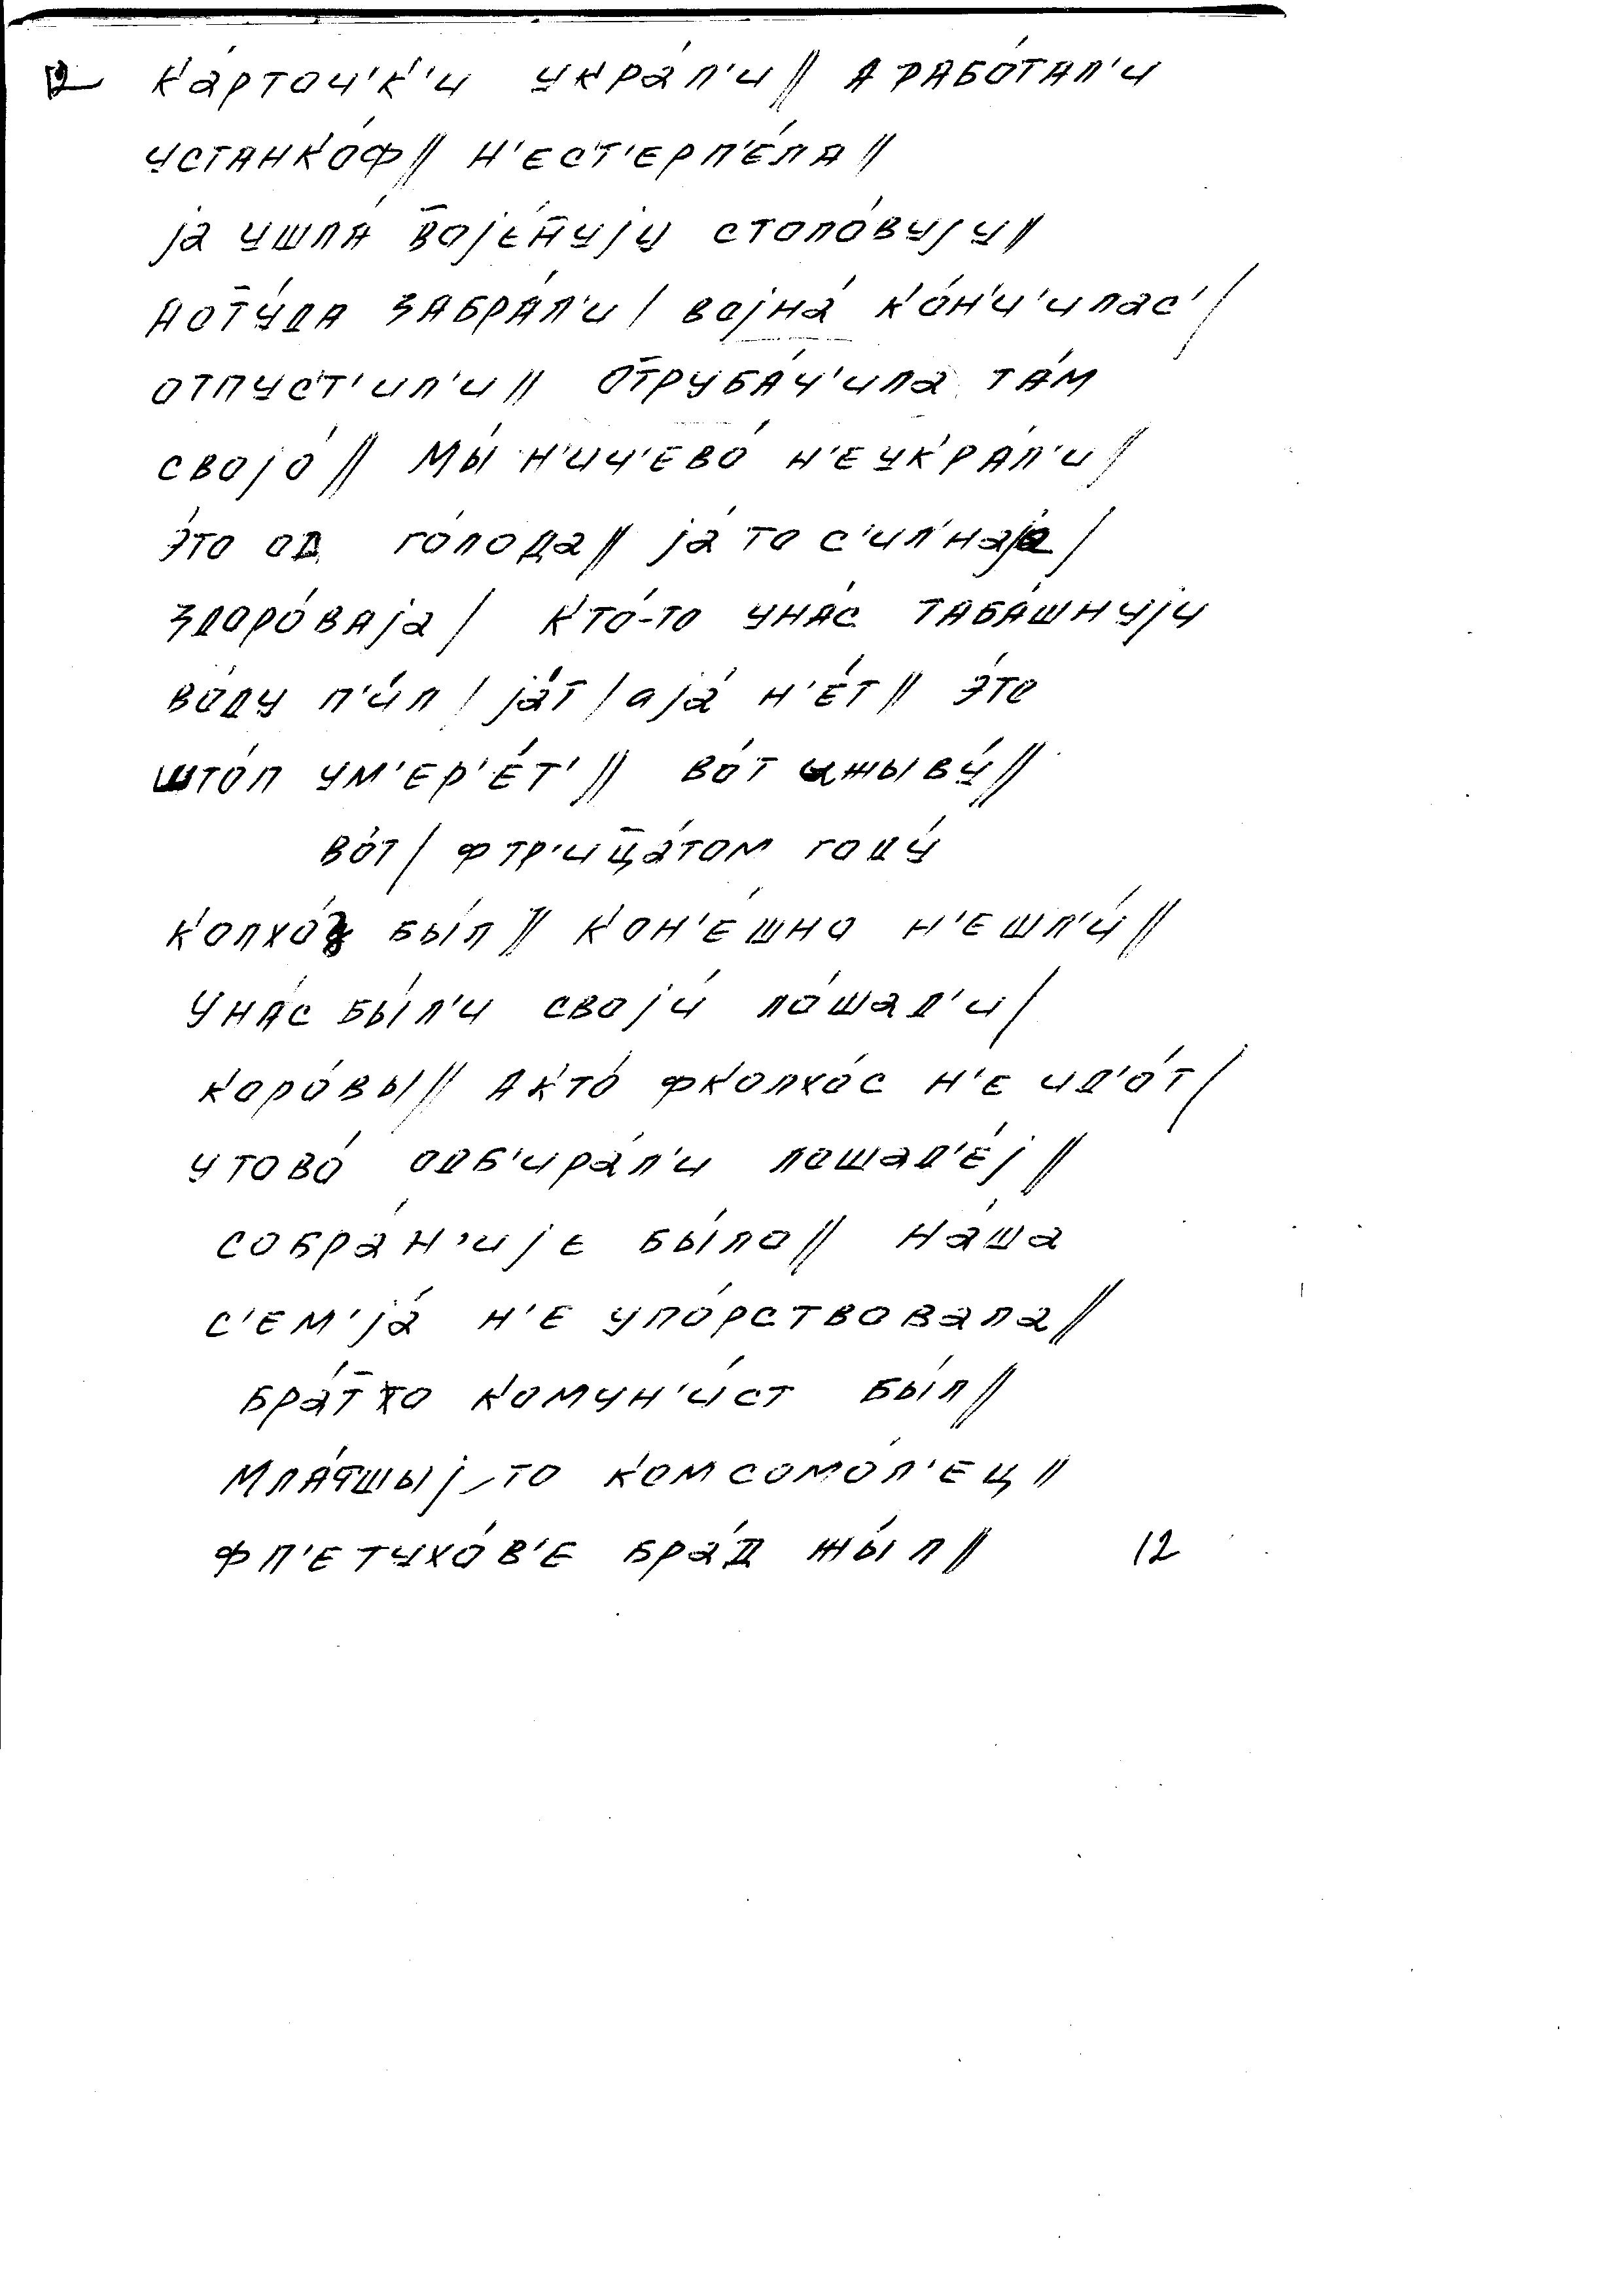 12 ка́рточ'к'и укра́л'и // а рабо́тал'и
устанко́ф // н'ест'ерп'е́ла //
jа ушла́ в̄оjе́н̄уjу столо́вуjу //
аот̄у́да забра́л'и / воjна́ ко́н'ч'илас' /
отпуст'ил'и // от̄руба́ч'ила та́м
своjо́ // мы́ н'ич'ево́ н'еукра́л'и /
э́то од го́лода // jа́ то с'ил'наjа /
здоро́ваjа / кто́-то уна́с таба́шнуjу
во́ду п'и́л / jа́т̄ / аjа́ н'е́т // э́то
што́п ум'ер'е́т' // во́т ижыву́ //
во́т / фтр'иц̄а́том году́
колхо́з бы́л // кон'е́шно н'ешл'и́ //
уна́с бы́л'и своjи́ ло́шад'и /
коро́вы // акто́ фколхо́с н'е ид'о́т /
утово́ одб'ира́л'и лошад'е́j //
собра́н'иjе бы́ло // на́ша
с'ем'jа́ н'е упо́рствовала //
бра́т̄то комун'и́ст бы́л //
мла́тшыj-то комсомо́л'ец //
фп'етухо́в'е бра́д жы́л // 12